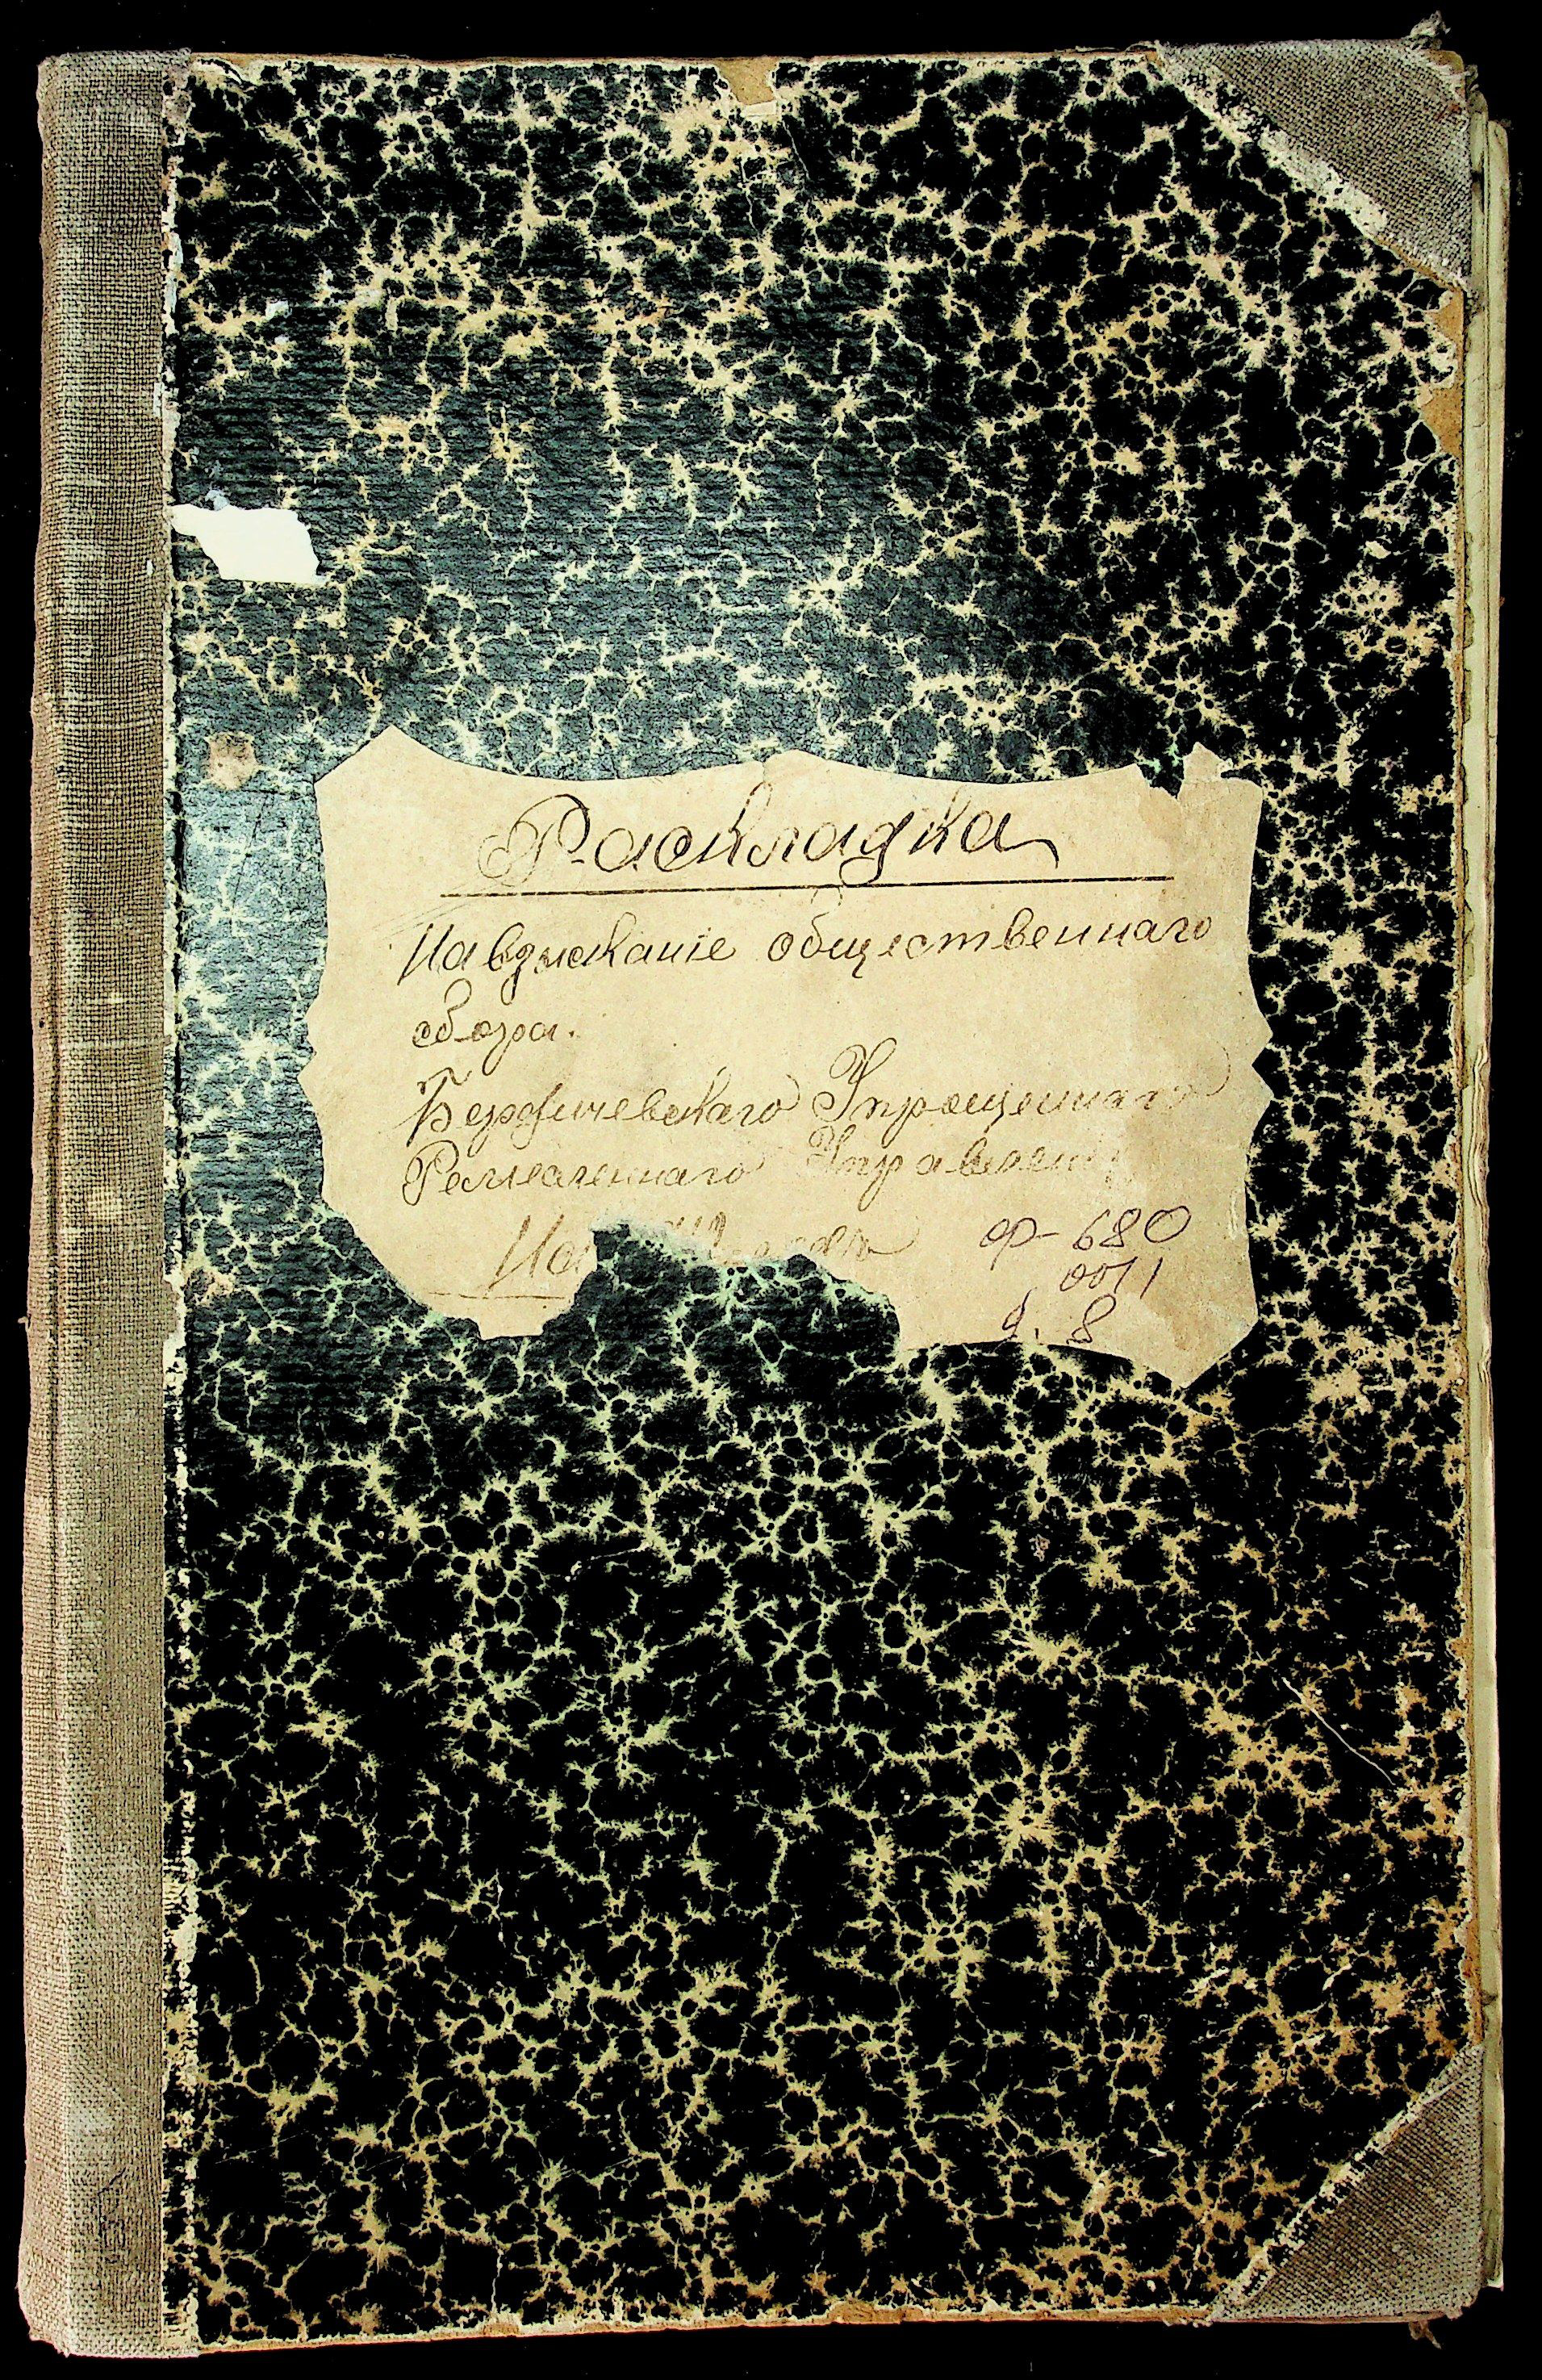 Раскладка
На взысканіе общественнаго
сбора.
Бердичевскаго Упрощеннаго
Ремесленнаго Управленія
На
ф-680
оп 1
д. 8